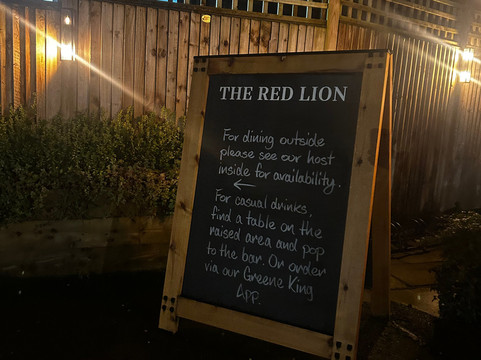 THE RED LION
For dining outside
please see our host
inside for availability.
←
For casual drinks,
find a table on the
raised area and pop
to the bar. Or order
via our Greene King
App.